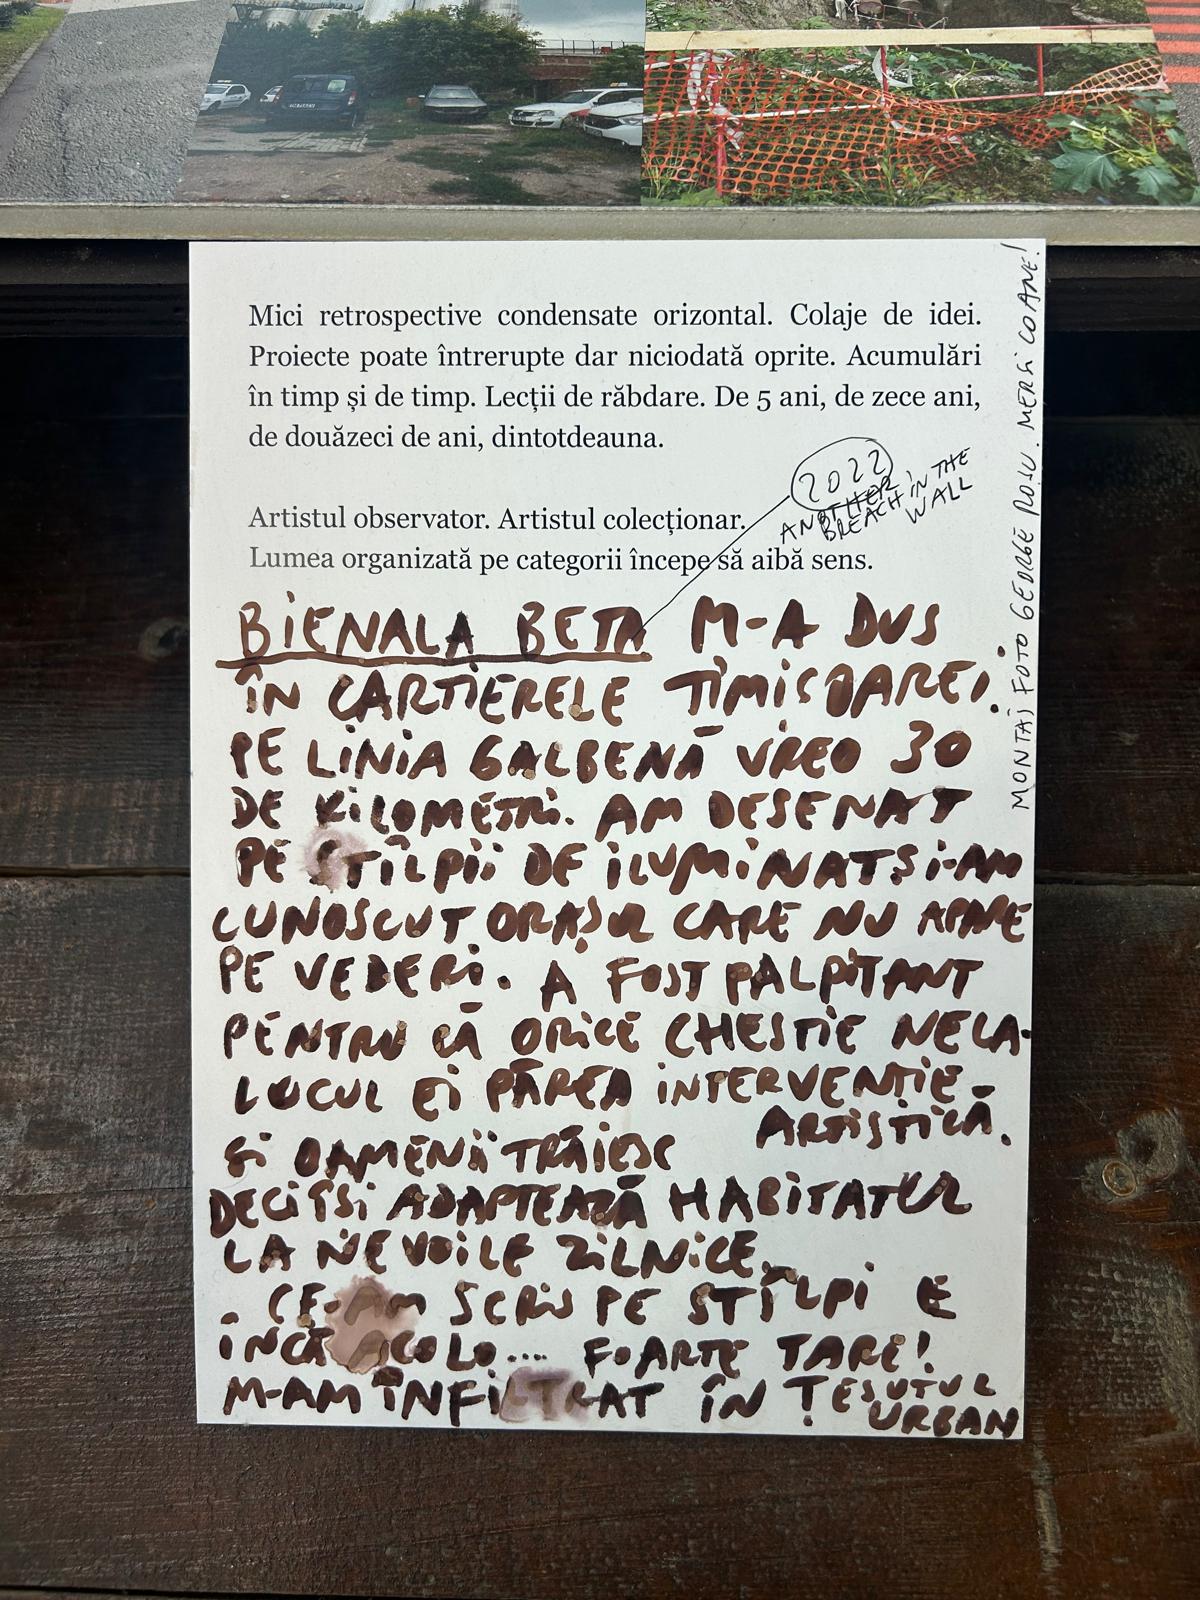 Mici retrospective condensate orizontal. Colaje de idei.
Proiecte poate întrerupte dar niciodată oprite. Acumulări
în timp și de timp. Lecții de răbdare. De 5 ani, de zece ani,
de douăzeci de ani, dintotdeauna.
Artistul observator. Artistul colecționar.
Lumea organizată pe categorii începe să aibă sens.
2022
ANOTHER
BREACH IN THE
WALL
BIENALA BETA M-A DUS
ÎN CARTIERELE TIMIȘOAREI.
PE LINIA GALBENĂ VREO 30
DE KILOMETRI. AM DESENAT
PE STÎLPII DE ILUMINAT ȘI-AM
CUNOSCUT ORAȘUL CARE NU APARE
PE VEDERI. A FOST PALPITANT
PENTRU CĂ ORICE CHESTIE NELA-
LOCUL EI PĂREA INTERVENȚIE
ARTISTICĂ.
ȘI OAMENII TRĂIESC
DECI ÎȘI ADAPTEAZĂ HABITATUL
LA NEVOILE ZILNICE.
. CE-AM SCRIS PE STÎLPI E
ÎNCĂ ACOLO.... FOARTE TARE!
M-AM ÎNFILTRAT ÎN ȚESUTUL
URBAN
MONTAJ FOTO GEORGE ROȘU. MERSI COANE!